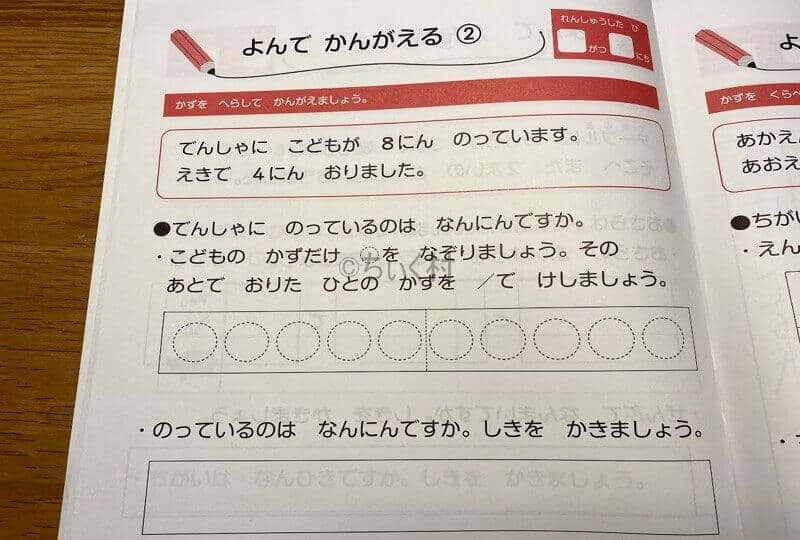 よんで かんがえる ②
れんしゅうした ひ
がつ にち
かずを へらして かんがえましょう。
でんしゃに こどもが 8にん のっています。
えきで 4にん おりました。
●でんしゃに のっているのは なんにんですか。
・こどもの かずだけ ◌を なぞりましょう。その
あとで おりた ひとの かずを ／で けしましょう。
©ちいく村
・のっているのは なんにんですか。しきを かきましょう。
かずを くらべ
あかえん
あおえ
●ちがい
・えん